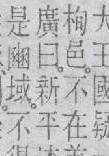 大王國疑
栒邑。不在
廣曰。新平
是豳域。不